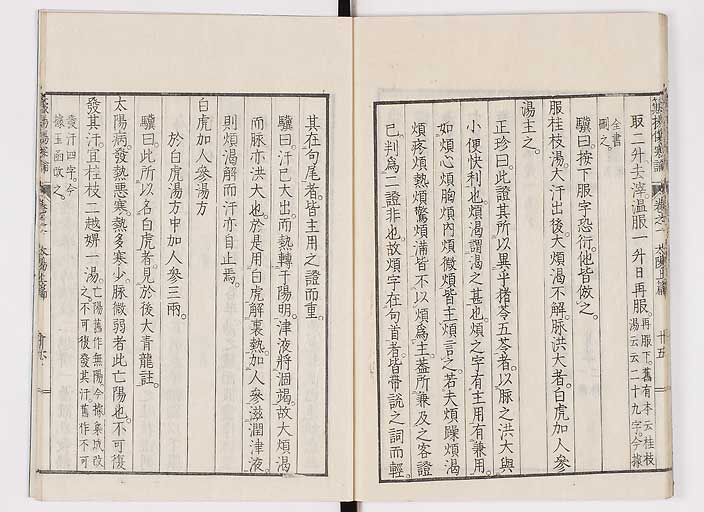 取二升去滓溫服一升日再服再服下舊有本云桂枝湯云云二十九字今據
全書刪之
驥曰按下服字恐衍他皆倣之
服桂枝湯大汗出後大煩渴不解脉洪大者白虎加人參
湯主之
正珍曰此證其所以異乎猪苓五苓者以脉之洪大與
小便快利也煩渴謂渴之甚也煩之字有主用有兼用
如煩心煩胸煩內煩微煩皆主煩言之若夫煩躁煩渴
煩疼煩熱煩驚煩滿皆不以煩爲主蓋所兼及之客證
已判爲二證非也故煩字在句首者皆帶說之詞而輕
其在句尾者皆主用之證而重
驥曰汗已大出而熱轉于陽明津液將涸竭故大煩渴
而脉亦洪大也於是用白虎解裏熱加人參滋潤津液
則煩渴解而汗亦自止焉
白虎加人參湯方
於白虎湯方中加人參三兩
驥曰此所以名白虎者見於後大青龍註
太陽病發熱惡寒熱多寒少脉微弱者此亡陽也不可復
發其汗宜桂枝二越婢一湯亡陽舊作無陽今據柰成改之不可復發其汗舊作不可
發汗四字今據玉函改之
太陽上篇 十五